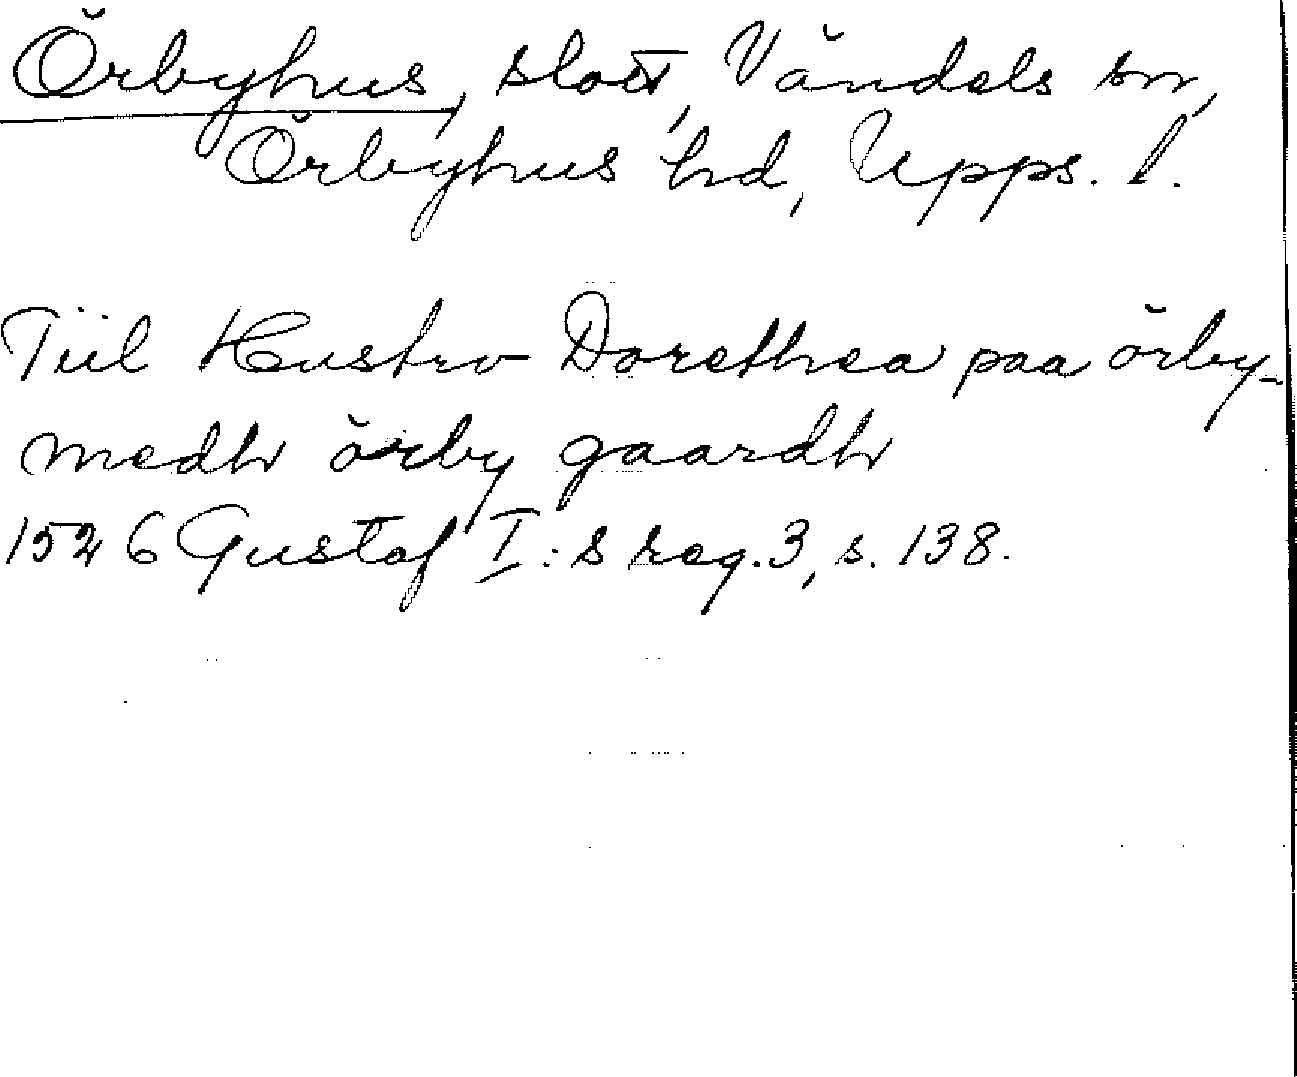 Örbyhus, slott, Vändels sn,
Örbyhus hd, Upps. l.
Tiil Hustro Dorethea paa örby-
medh örby gaardh
1526 Gustaf I:s reg. 3, s. 138.